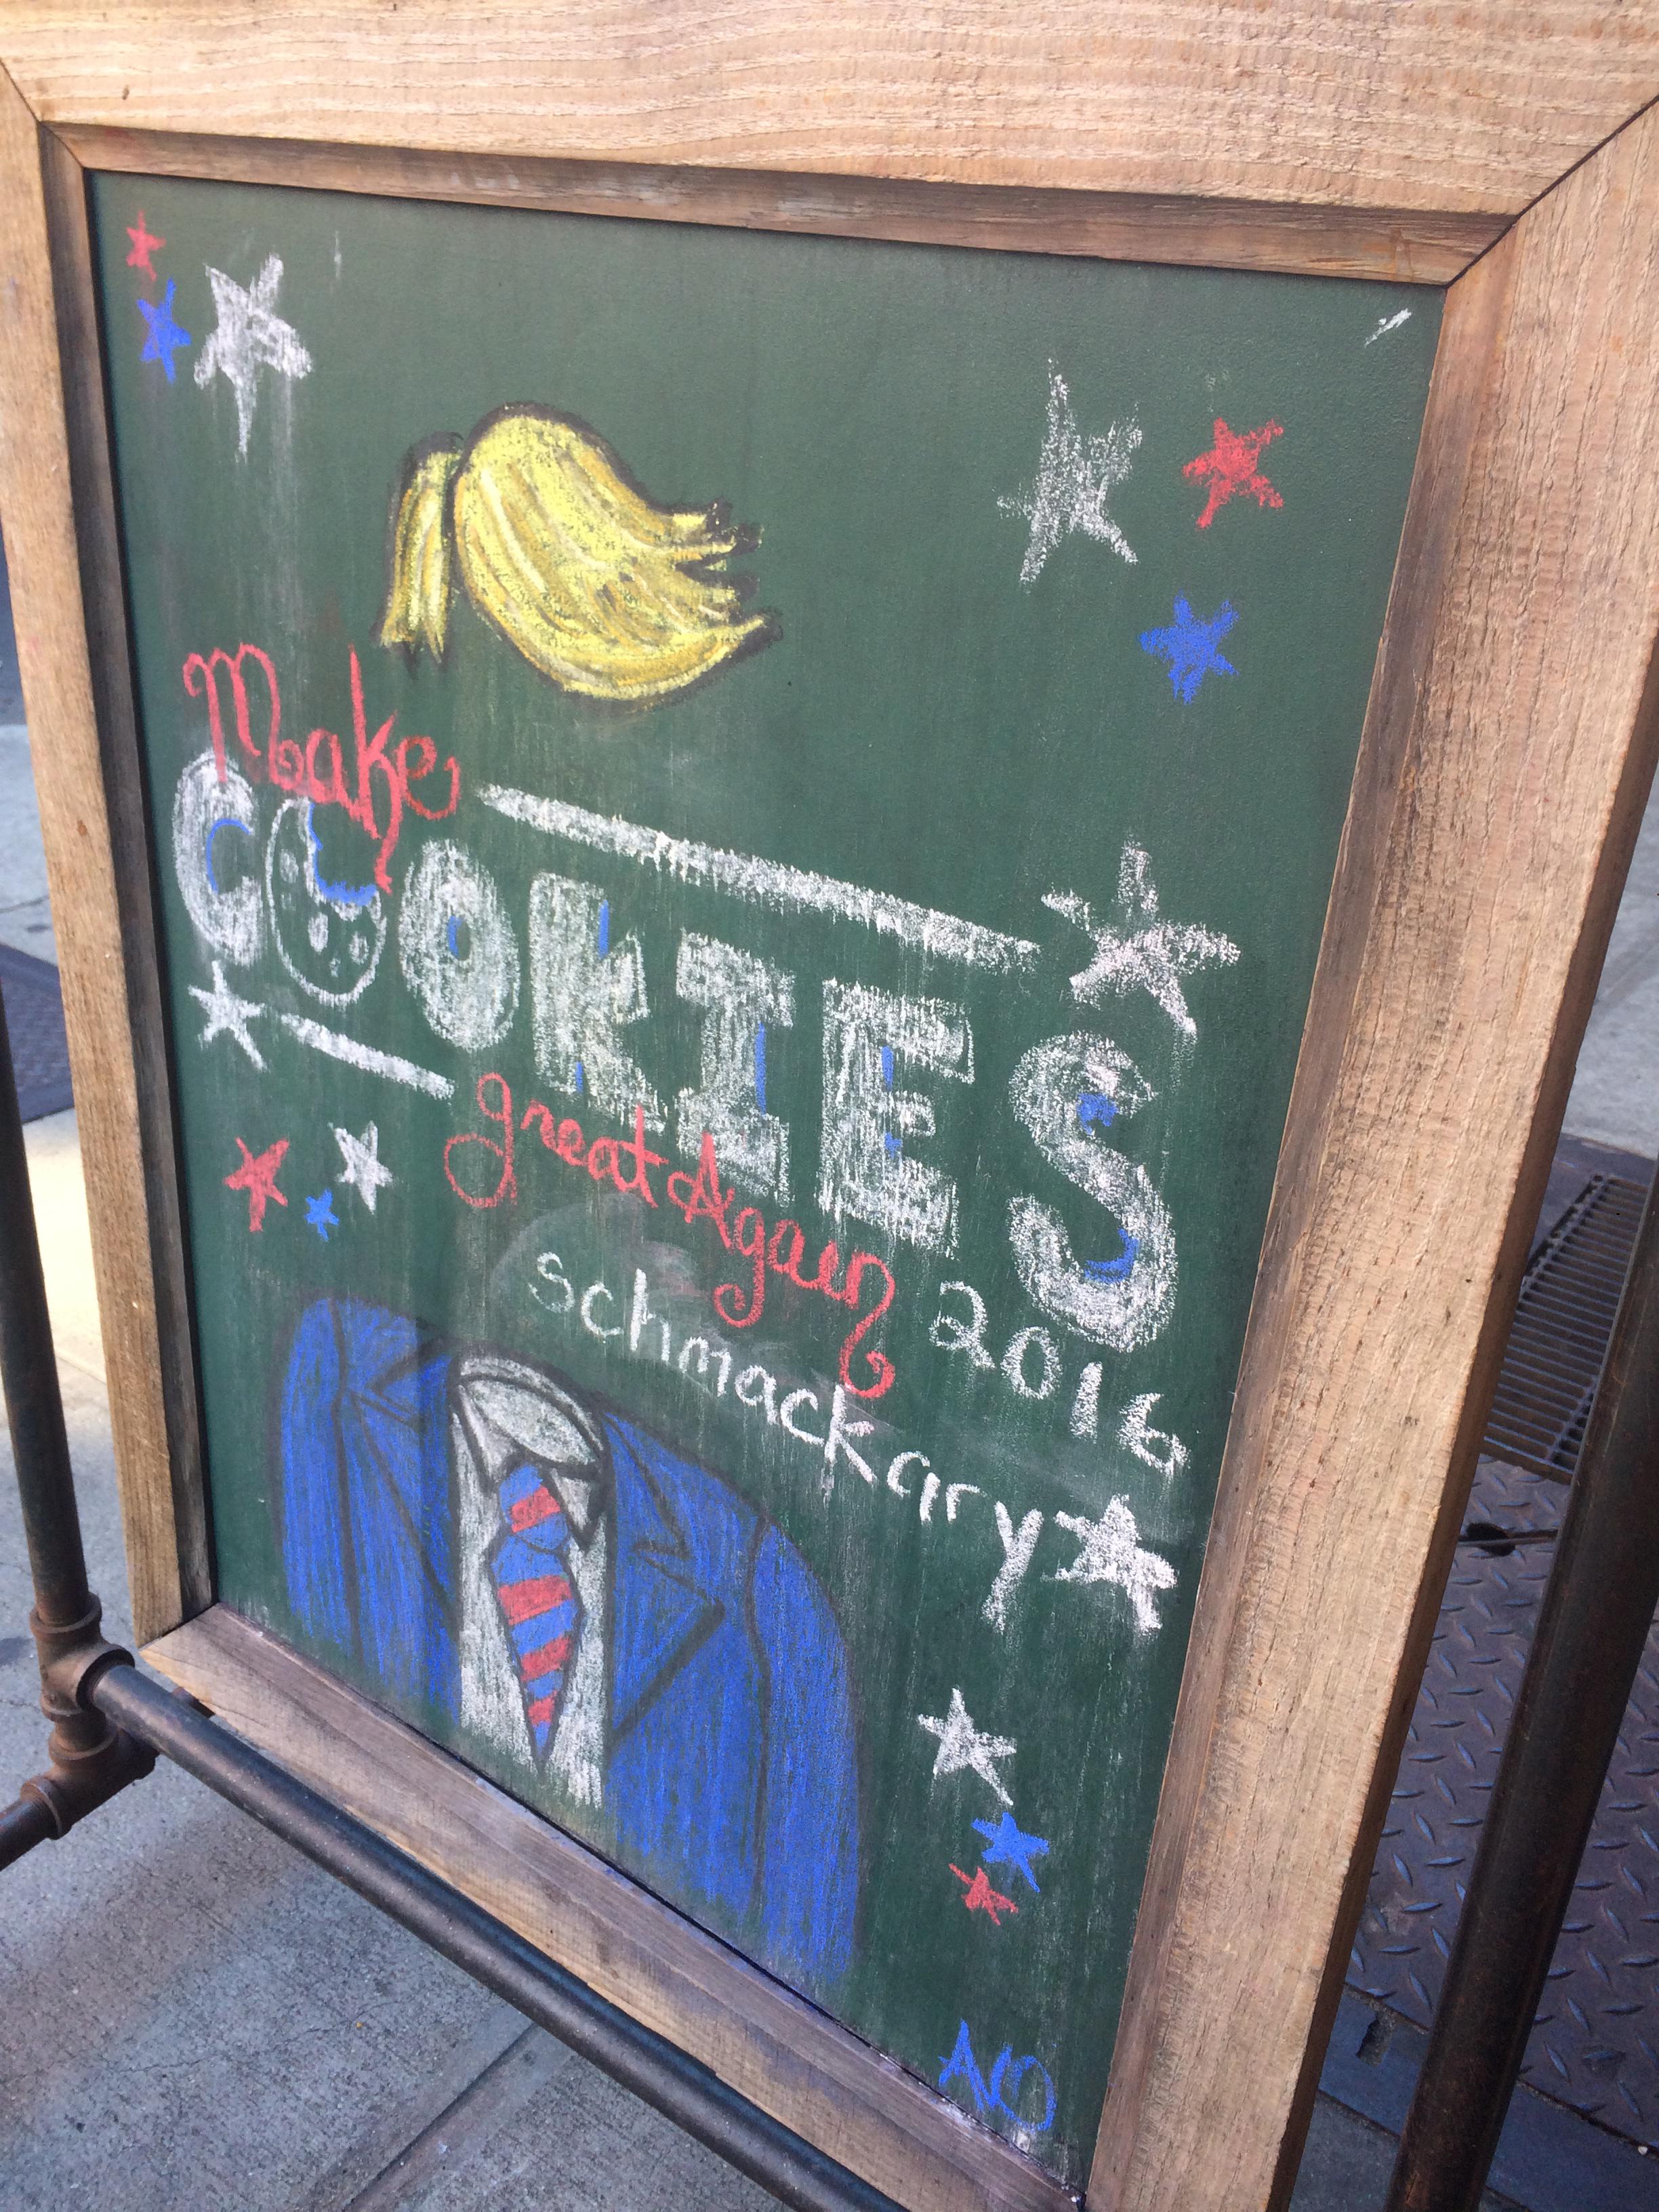 Make
COOKIES
great Again
2016
schmackary